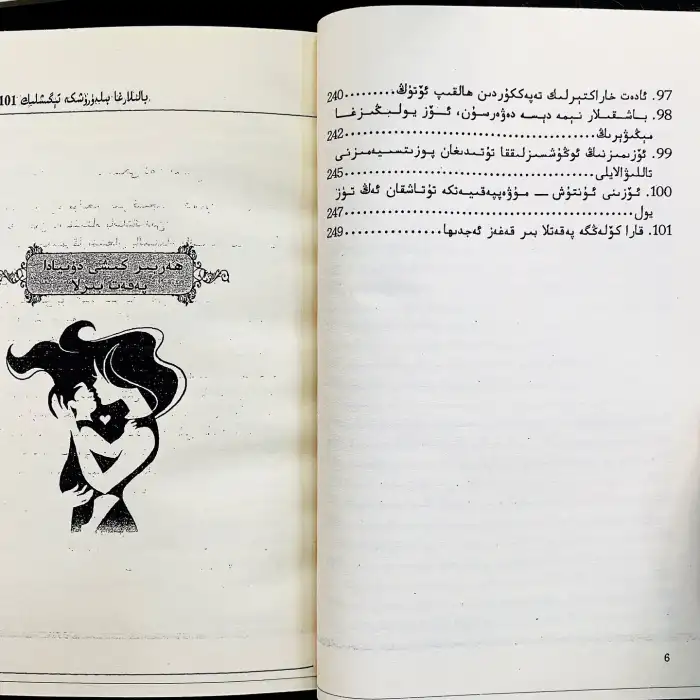 97. ئادەت خاراكتېرلىك تەپەككۇردىن ھالقىپ ئۆتۈڭ.........240
98. باشقىلار نېمە دېسە دەۋەرسۇن، ئۆز يولىڭىزغا
مېڭىۋېرىڭ..............................242
99. ئۆزىمىزنىڭ ئوڭۇشسىزلىققا تۇتىدىغان پوزىتسىيەمىزنى
تاللىۋالايلى..............................245
100. ئۆزىنى ئۇنتۇش — مۇۋەپپەقىيەتكە تۇتاشقان ئەڭ تۈز
يول..............................247
101. قارا كۆلەڭگە پەقەتلا بىر قەغەز ئەجدىھا...............249
6
بالىلارغا بىلدۈرۈشكە تېگىشلىك 101
ھەربىر كىشى دۇنيادا
پەقەت بىرلا